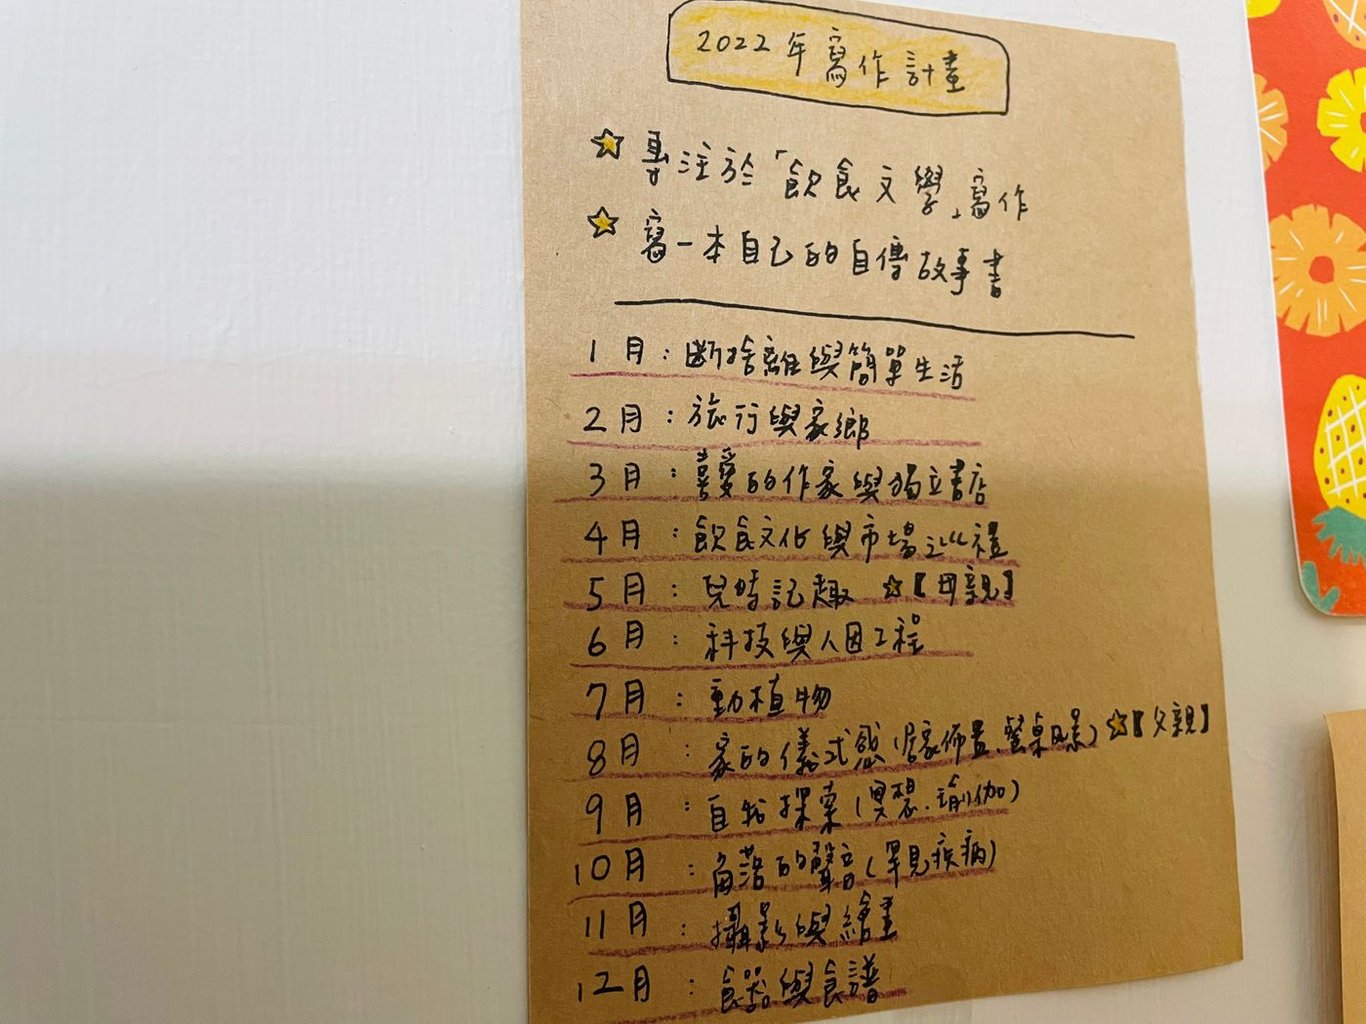 2022年寫作計畫
☆ 專注於「飲食文學」寫作
☆ 寫一本自己的自傳故事書
1月:斷捨離與簡單生活
2月:旅行與家鄉
3月:喜愛的作家與獨立書店
4月:飲食文化與市場巡禮
5月:兒時記趣 ☆【母親】
6月:科技與人因工程
7月:動植物
8月:家的儀式感(居家佈置、餐桌風景)☆【父親】
9月:自我探索(冥想、瑜伽)
10月:角落的聲音(罕見疾病)
11月:攝影與繪畫
12月:食器與食譜